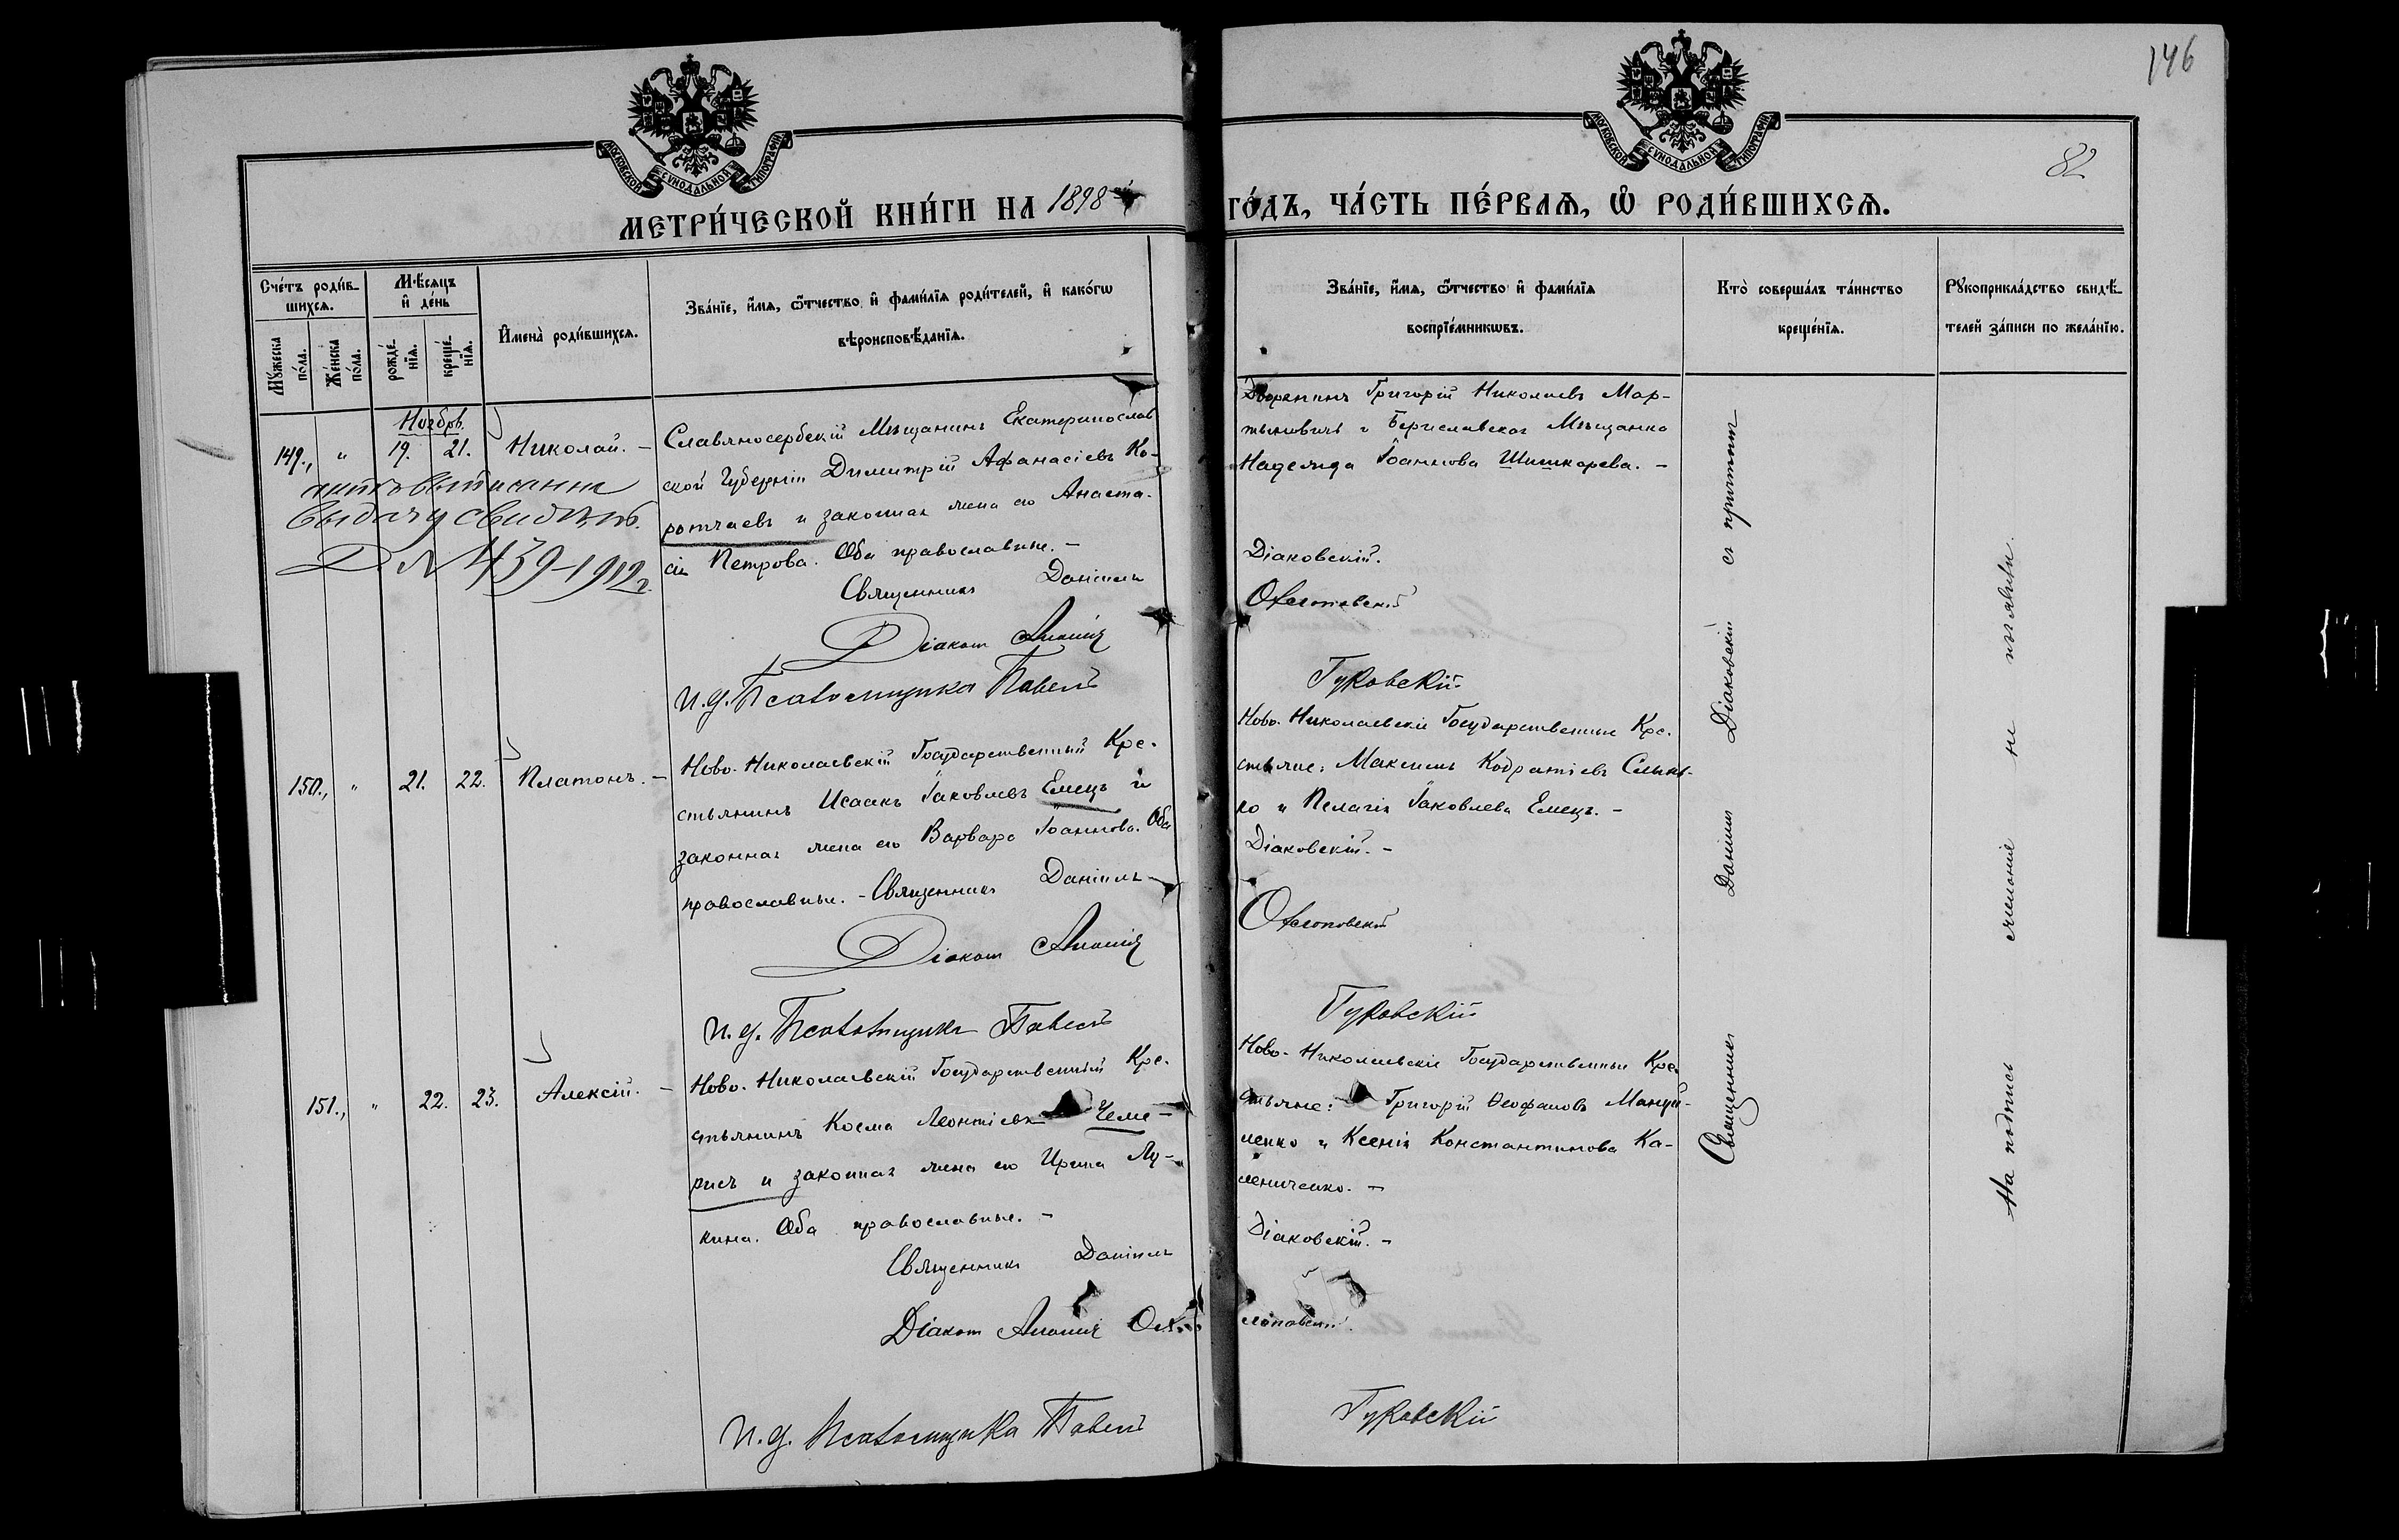 146
82
МОСКОВСКОЙ СѴНОДАЛЬНОЙ ТИПОГРАФІИ
МОСКОВСКОЙ СѴНОДАЛЬНОЙ ТИПОГРАФІИ
МЕТРИ́ЧЕСКОЙ КНИ́ГИ НА 1898
ГО́ДЪ, ЧА́СТЬ ПЕ́РВАѦ, Ѡ҆ РОДИ́ВШИХСѦ.
Сче́тъ роди́в-
шихсѧ.
Мꙋ́жеска по́ла.
Же́нска по́ла.
Мѣ́сѧцъ
и҆ де́нь
рожде́-
нїѧ.
креще́-
нїѧ.
И҆мена̀ роди́вшихсѧ.
Зва́нїе, и҆́мѧ, ѻ҆́тчество и҆ фами́лїѧ роди́телей, и҆ како́гѡ
вѣроисповѣ́данїѧ.
Зва́нїе, и҆́мѧ, ѻ҆́тчество и҆ фами́лїѧ
воспрїе́мникѡвъ.
Кто̀ соверша́лъ та́инство
креще́нїѧ.
Рꙋкоприкла́дство свидѣ́-
телей за́писи по жела́нїю.
Ноябрь.
149., " 19. 21. Николай. -
выдачу свидѣт.
№ 439-1912 г.
Славяносербскій Мѣщанинъ Екатеринослав
ской Губерніи Димитрій Афанасіевъ Ко-
ротчаевъ и законная жена его Анаста-
сія Петрова. Оба православные. -
Священникъ Даніилъ
Діаконъ Ананія
И. д. Псаломщика Павелъ
Дворянинъ Григорій Николаевъ Мар-
тыновичъ и Бериславская Мѣщанка
Надежда Іоаннова Шишкарева. -
Діаковскій.
Гуковскій
150., " 21. 22. Платонъ. -
Ново-Николаевскій Государственный Кре-
стьянинъ Исаакъ Іаковлевъ Емецъ и
законная жена его Варвара Іоаннова. Оба
православные. - Священникъ Даніилъ
Діаконъ Ананія
И. д. Псаломщика Павелъ
Ново-Николаевскіе Государственные Кре-
стьяне: Максимъ Кодратіевъ
ко и Пелагія Іаковлева Емецъ. -
Діаковскій. -
Гуковскій
151., " 22. 23. Алексій. -
Ново-Николаевскій Государственный Кре-
стьянинъ Косма Леонтіевъ Чеме-
рисъ и законная жена его Ирина Лу-
кина. Оба православные. -
Священникъ Даніилъ
Діаконъ Ананія
И. д. Псаломщика Павелъ
Ново-Николаевскіе Государственные Кре-
стьяне: Григорій Ѳеофановъ Мануй-
ленко и Ксенія Константинова Ка-
лениченко. -
Діаковскій. -
Гуковскій
Священникъ Даніилъ Діаковскій съ причтомъ
На подпись желанія не изъявили.